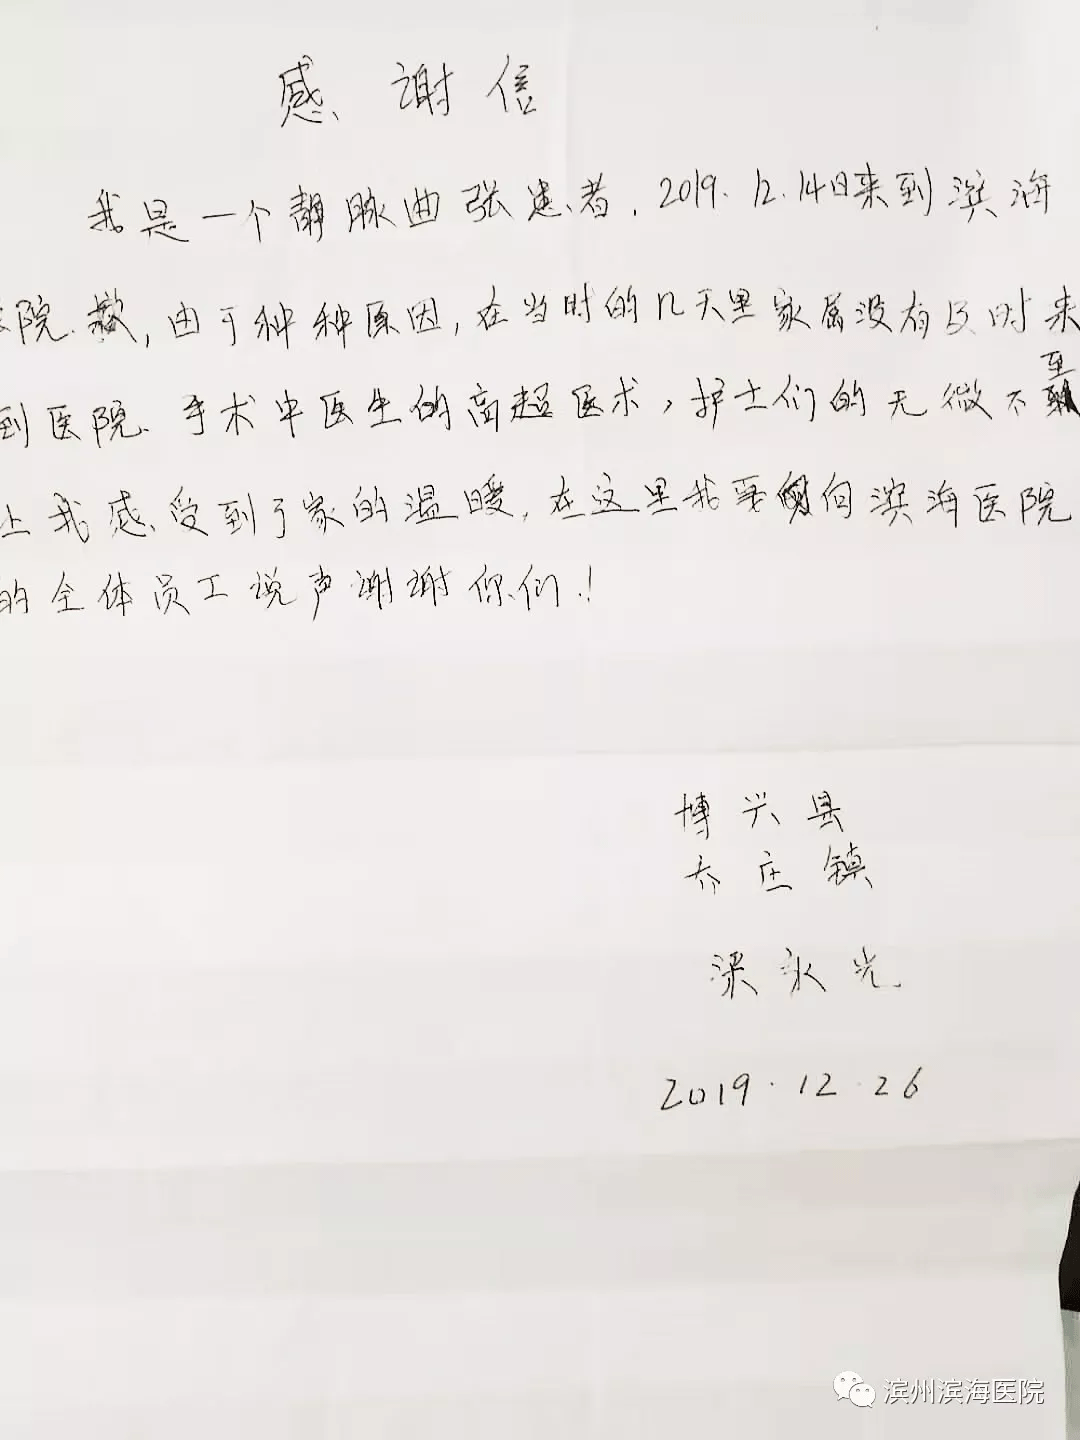 感谢信
我是一个静脉曲张患者,2019.12.14日来到滨海
医院.就,由于种种原因,在当时的几天里家属没有及时来
到医院.手术中医生的高超医术,护士们的无微不至
让我感受到了家的温暖,在这里我要向滨海医院
的全体员工说声谢谢你们!
博兴县
乔庄镇
梁永光
2019.12.26
滨州滨海医院